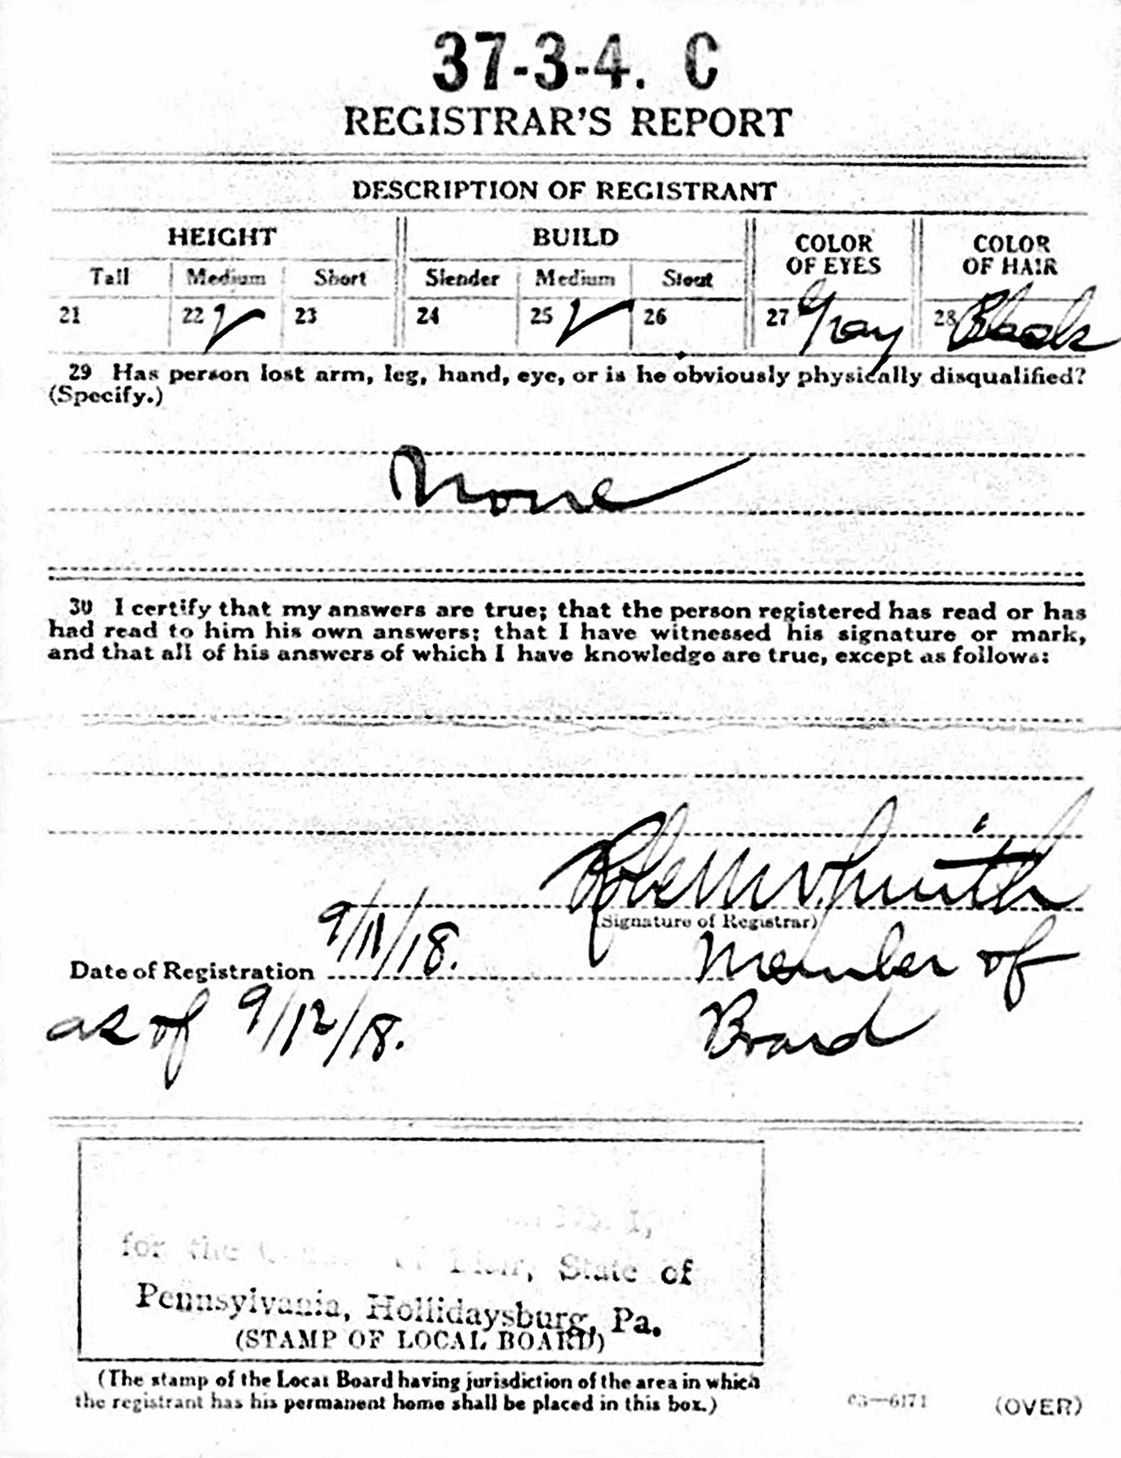 37-3-4. C
REGISTRAR'S REPORT
DESCRIPTION OF REGISTRANT
HEIGHT BUILD COLOR OF EYES COLOR OF HAIR
Tall Medium Short Slender Medium Stout
21 22 ✓ 23 24 25 ✓ 26 27 Gray 28 Black
29 Has person lost arm, leg, hand, eye, or is he obviously physically disqualified?
(Specify.)
None
30 I certify that my answers are true; that the person registered has read or has
had read to him his own answers; that I have witnessed his signature or mark,
and that all of his answers of which I have knowledge are true, except as follows:
Smith
(Signature of Registrar)
Date of Registration 9/11/18. Member of
as of 9/12/18. Board
1,
for the of Blair, State of
Pennsylvania, Hollidaysburg, Pa.
(STAMP OF LOCAL BOARD)
(The stamp of the Local Board having jurisdiction of the area in which
the registrant has his permanent home shall be placed in this box.)
03—6171 (OVER)